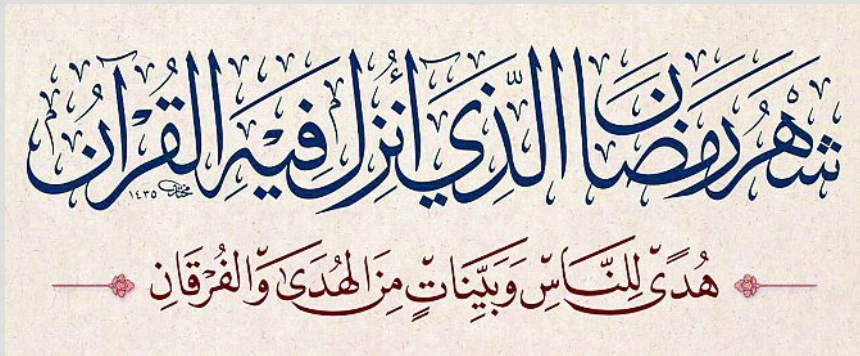 شَهْرُ رَمَضَانَ الَّذِي أُنْزِلَ فِيهِ الْقُرْآنُ
١٤٣٥
هُدًى لِلنَّاسِ وَبَيِّنَاتٍ مِنَ الْهُدَى وَالْفُرْقَانِ